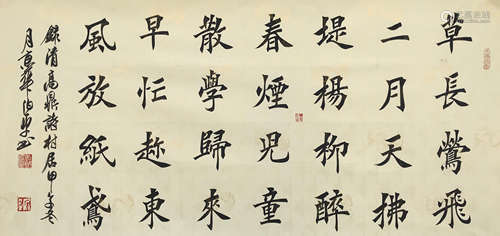 草長鶯飛
二月天拂
堤楊柳醉
春煙兒童
散學歸來
早忙趂東
風放紙鳶
錄清高鼎詩村居甲午冬
月